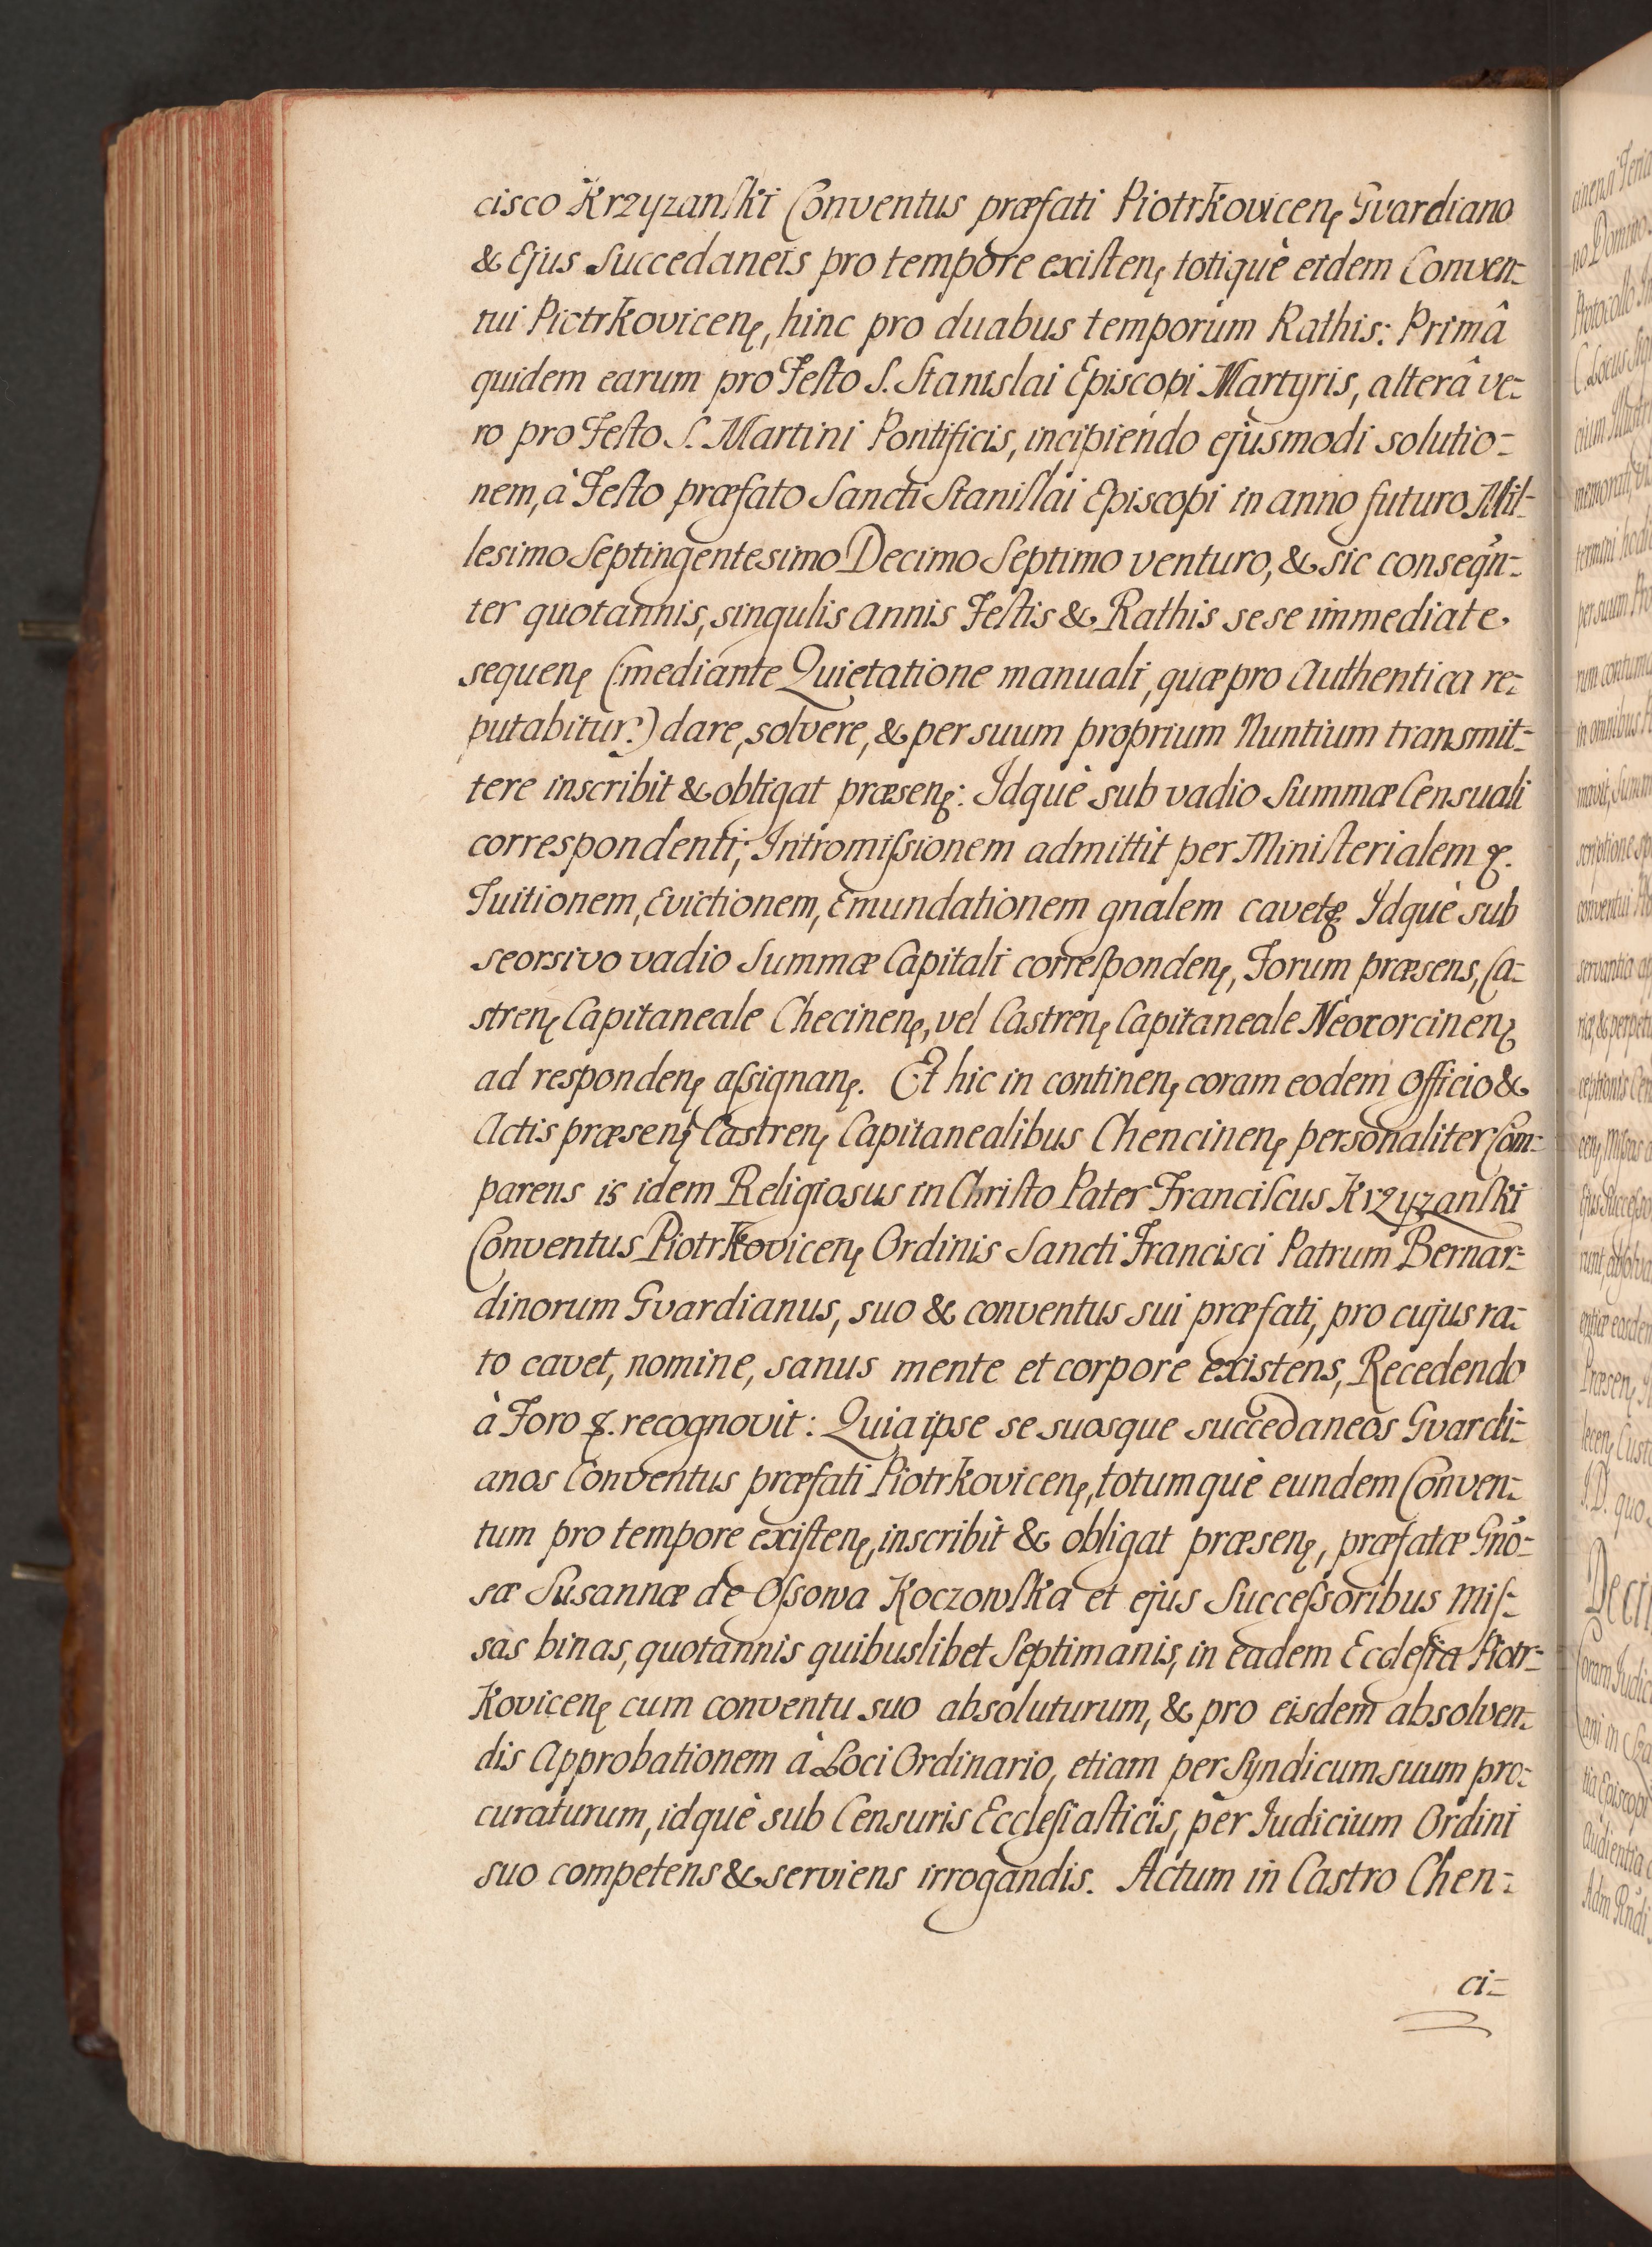 cisco Krzyzanſki Conventus præfati Piotrkovicenę Gvardiano
& Ejus Succedaneis pro tempore exiſtenę totiquè eidem Conven=
tui Piotrkovicenę, hinc pro duabus temporum Rathis: Primâ
quidem earum pro Feſto S. Stanislai Episcopi Martyris, alterâ ve=
ro pro Feſto S. Martini Pontificis, incipiendo ejusmodi solutio=
nem, à Feſto præfato Sancti Staniſlai Episcopi in anno futuro Mil=
lesimo Septingentesimo Decimo Septimo venturo, & sic conseqn̄=
ter quotannis, singulis annis Feſtis & Rathis sese immediate
sequenę (:mediante Quietatione manuali, quæ pro Authentica re=
putabitur:) dare, solvere, & per suum proprium Nuntium transmit=
tere inscribit & obligat præsenę: Idquè sub vadio Summæ Censuali
correspondenti; Intromiſsionem admittit per Miniſterialem &.
Tuitionem, Evictionem, Emundationem gnalem cavet& Idquè sub
seorsivo vadio Summæ Capitali correſpondenę, Forum præsens, Ca=
strenę Capitaneale Checinenę, vel Castrenę Capitaneale Neocorcinenę
ad respondenę aſsignanę. Et hic in continenę coram eodem Officio &
Actis præsenę Castrenę Capitanealibus Chencinenę personaliter Com=
parens is idem Religiosus in Chriſto Pater Franciſcus Krzyzanſki
Conventus Piotrkovicenę Ordinis Sancti Francisci Patrum Bernar=
dinorum Gvardianus, suo & conventus sui præfati, pro cujus ra=
to cavet, nomine, sanus mente et corpore existens, Recedendo
à Foro &. recognovit: Quia ipse se suosque succedaneos Gvardi=
anos Conventus præfati Piotrkovicenę, totumquè eundem Conven=
tum pro tempore exiſtenę, inscribit & obligat præsenę, præfatæ Gnō=
sæ Susannæ de Oſsowa Koczowſka et ejus Succeſsoribus Miſ=
sas binas, quotannis quibuslibet Septimanis, in eadem Eccleſia Piotr=
Kovicenę cum conventu suo absoluturum, & pro eisdem absolven=
dis Approbationem à Loci Ordinario, etiam per Syndicum suum pro=
curaturum, idquè sub Censuris Eccleſiaſticis, per Iudicium Ordini
suo competens & serviens irrogandis. Actum in Castro Chen=
ci=